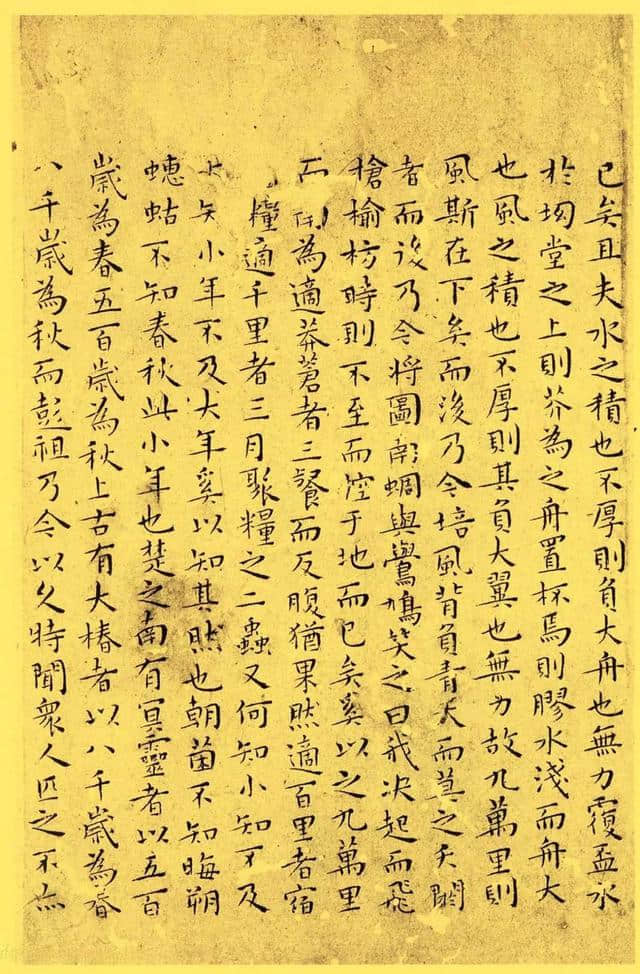 已矣且夫水之積也不厚則負大舟也無力覆盃水
於坳堂之上則芥為之舟置杯焉則膠水淺而舟大
也風之積也不厚則其負大翼也無力故九萬里則
風斯在下矣而後乃今培風背負青天而莫之夭閼
者而後乃今將圖南蜩與鷽鳩笑之曰我决起而飛
槍榆枋時則不至而控于地而已矣奚以之九萬里
而為適莽蒼者三餐而反腹猶果然適百里者宿
糧適千里者三月聚糧之二蟲又何知小知不及
小年不及大年奚以知其然也朝菌不知晦朔
蟪蛄不知春秋此小年也楚之南有冥靈者以五百
歲為春五百歲為秋上古有大椿者以八千歲為春
八千歲為秋而彭祖乃今以久時聞衆人匹之不亦